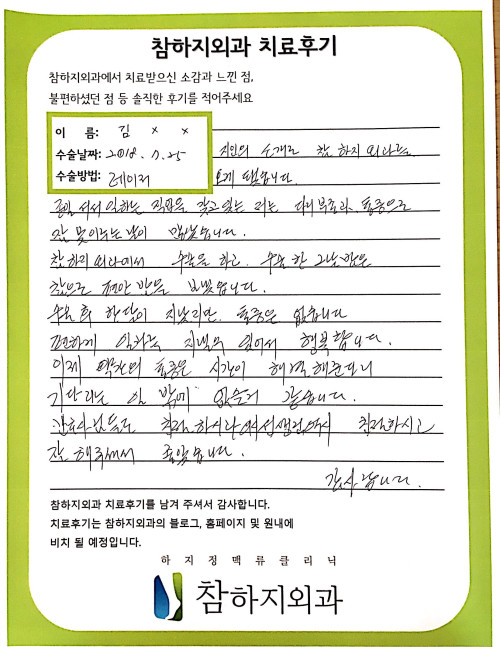 참하지외과 치료후기
참하지외과에서 치료받으신 소감과 느낀 점,
불편하셨던 점 등 솔직한 후기를 적어주세요
이 름: 김 x x
수술날짜: 2018. 7. 25
수술방법: 레이저
지인의 소개로 참하지외과를
오게 됐습니다.
종일 서서 일하는 직업을 갖고 있는 저는 다리 부종과 통증으로
잠 못이루는 날이 많았습니다.
참하지외과에서 수술을 하고 수술한 그날밤은
참으로 편안 밤을 보냈습니다.
수술 후 한달이 지났지만 통증은 없습니다
편하게 일하고 지낼 수 있어서 행복합니다.
이제 약간의 통증은 시간이 해결해준다니
기다리는 일 밖에 없는거 같습니다.
간호사님들도 친절하시고 친절하시고
잘 해주셔서 좋았습니다.
감사합니다.
참하지외과 치료후기를 남겨 주셔서 감사합니다.
치료후기는 참하지외과의 블로그, 홈페이지 및 원내에
비치 될 예정입니다.
하지정맥류클리닉
참하지외과